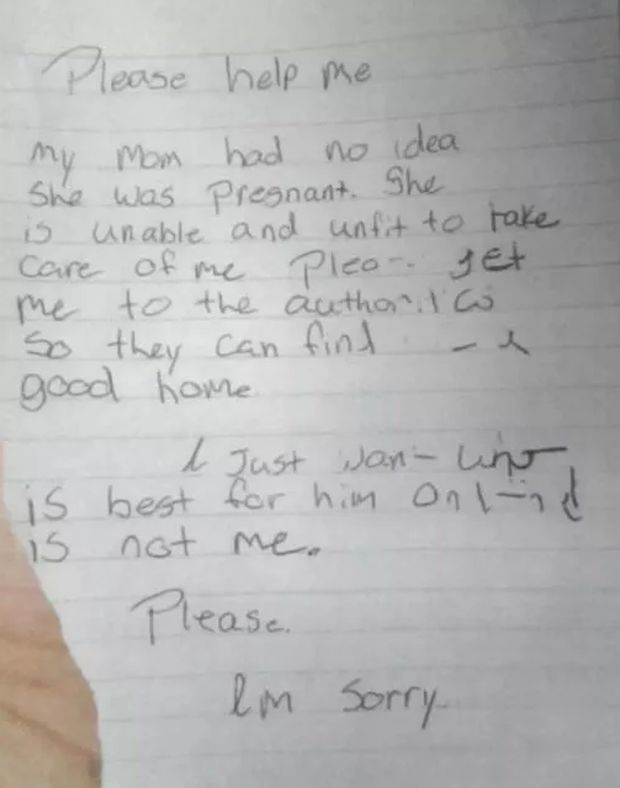 Please help me
my Mom had no idea
She was Pregnant. She
is unable and unfit to take
care of me get
me to the
So they can find
good home
I Just
is best for him
is not me.
Please.
Im Sorry